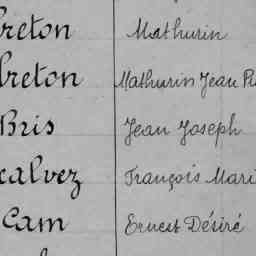 Breton Mathurin
Breton Mathurin Jean Pi
Bris Jean Joseph
calvez François Mari
Cam Ernest Désiré